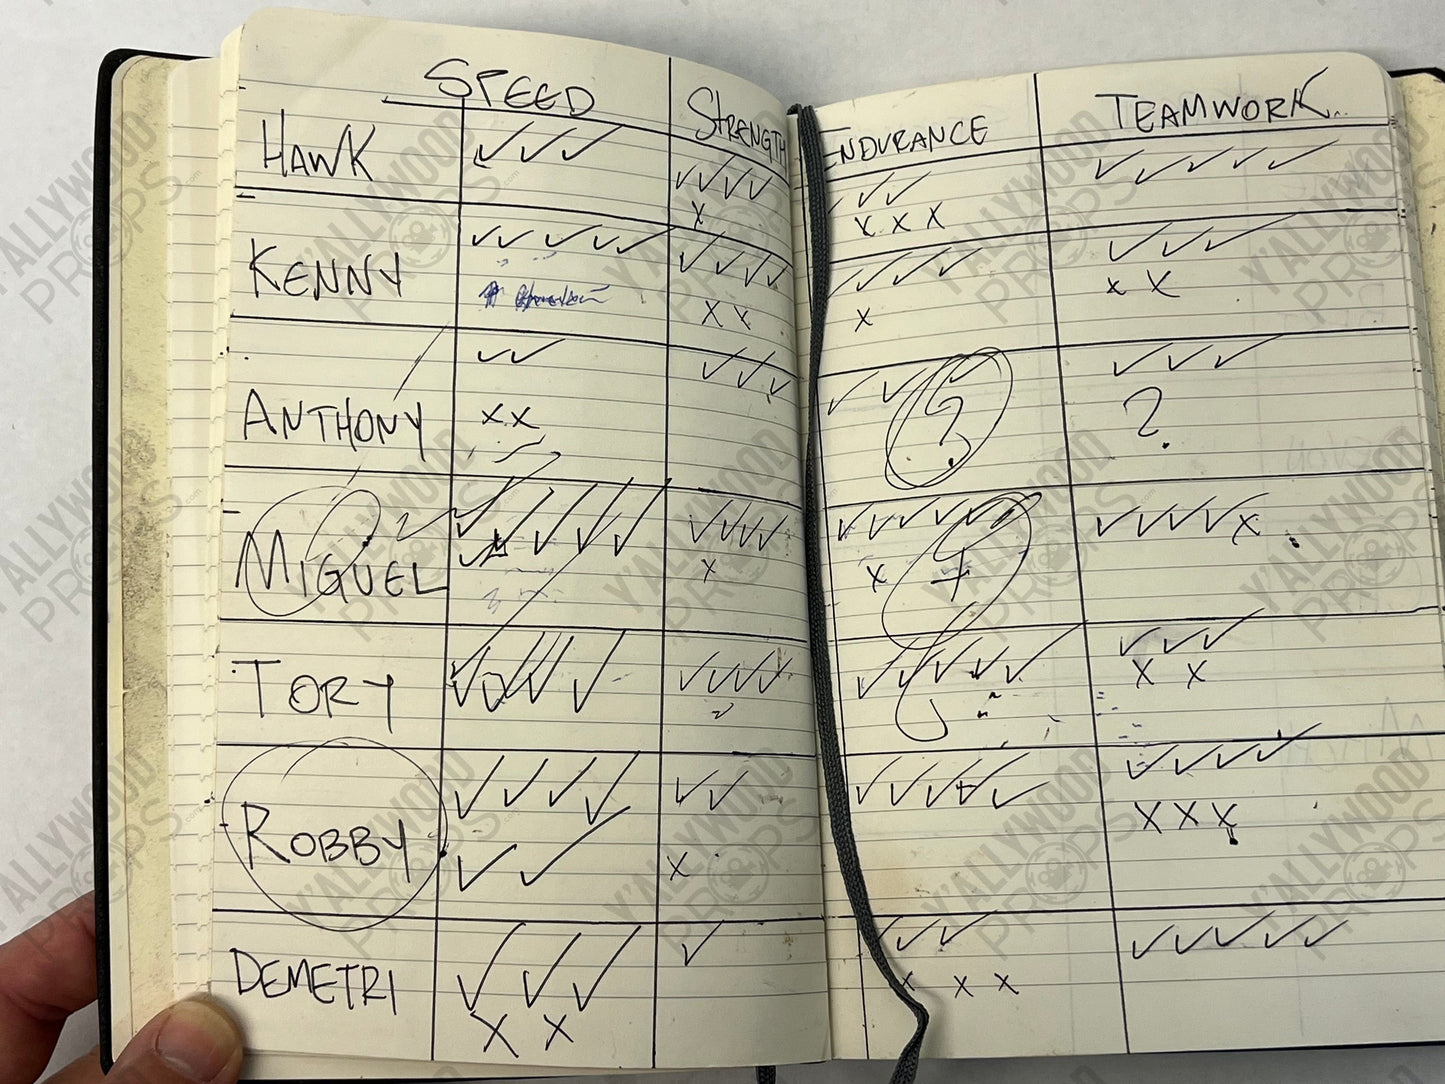 SPEED STRENGTH ENDURANCE TEAMWORK
HAWK ✓✓✓ ✓✓✓✓ ✓✓ ✓✓✓✓✓
X X X X
KENNY ✓✓✓✓✓ ✓✓✓✓ ✓✓✓✓ ✓✓✓
X X X X X
ANTHONY ✓✓ ✓✓✓ ✓✓✓ ✓✓✓
X X ? ?
MIGUEL ✓✓✓✓ ✓✓✓✓✓ ✓✓✓✓ X
X X
TORY ✓✓✓✓ ✓✓✓✓✓ ✓✓✓
X X
ROBBY ✓✓✓✓ ✓✓ ✓✓✓✓✓ ✓✓✓✓
✓✓ X X X X
DEMETRI ✓✓✓ ✓ ✓✓✓ ✓✓✓✓✓
X X X X X
Y'ALLYWOOD
PROPS.com